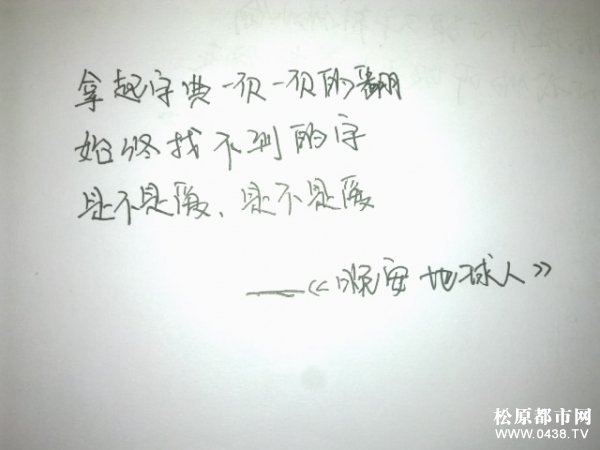 拿起字典一页一页的翻
始终找不到的字
是不是像、是不是像
——《晚安地球人》
松原都市网
WWW.0438.TV